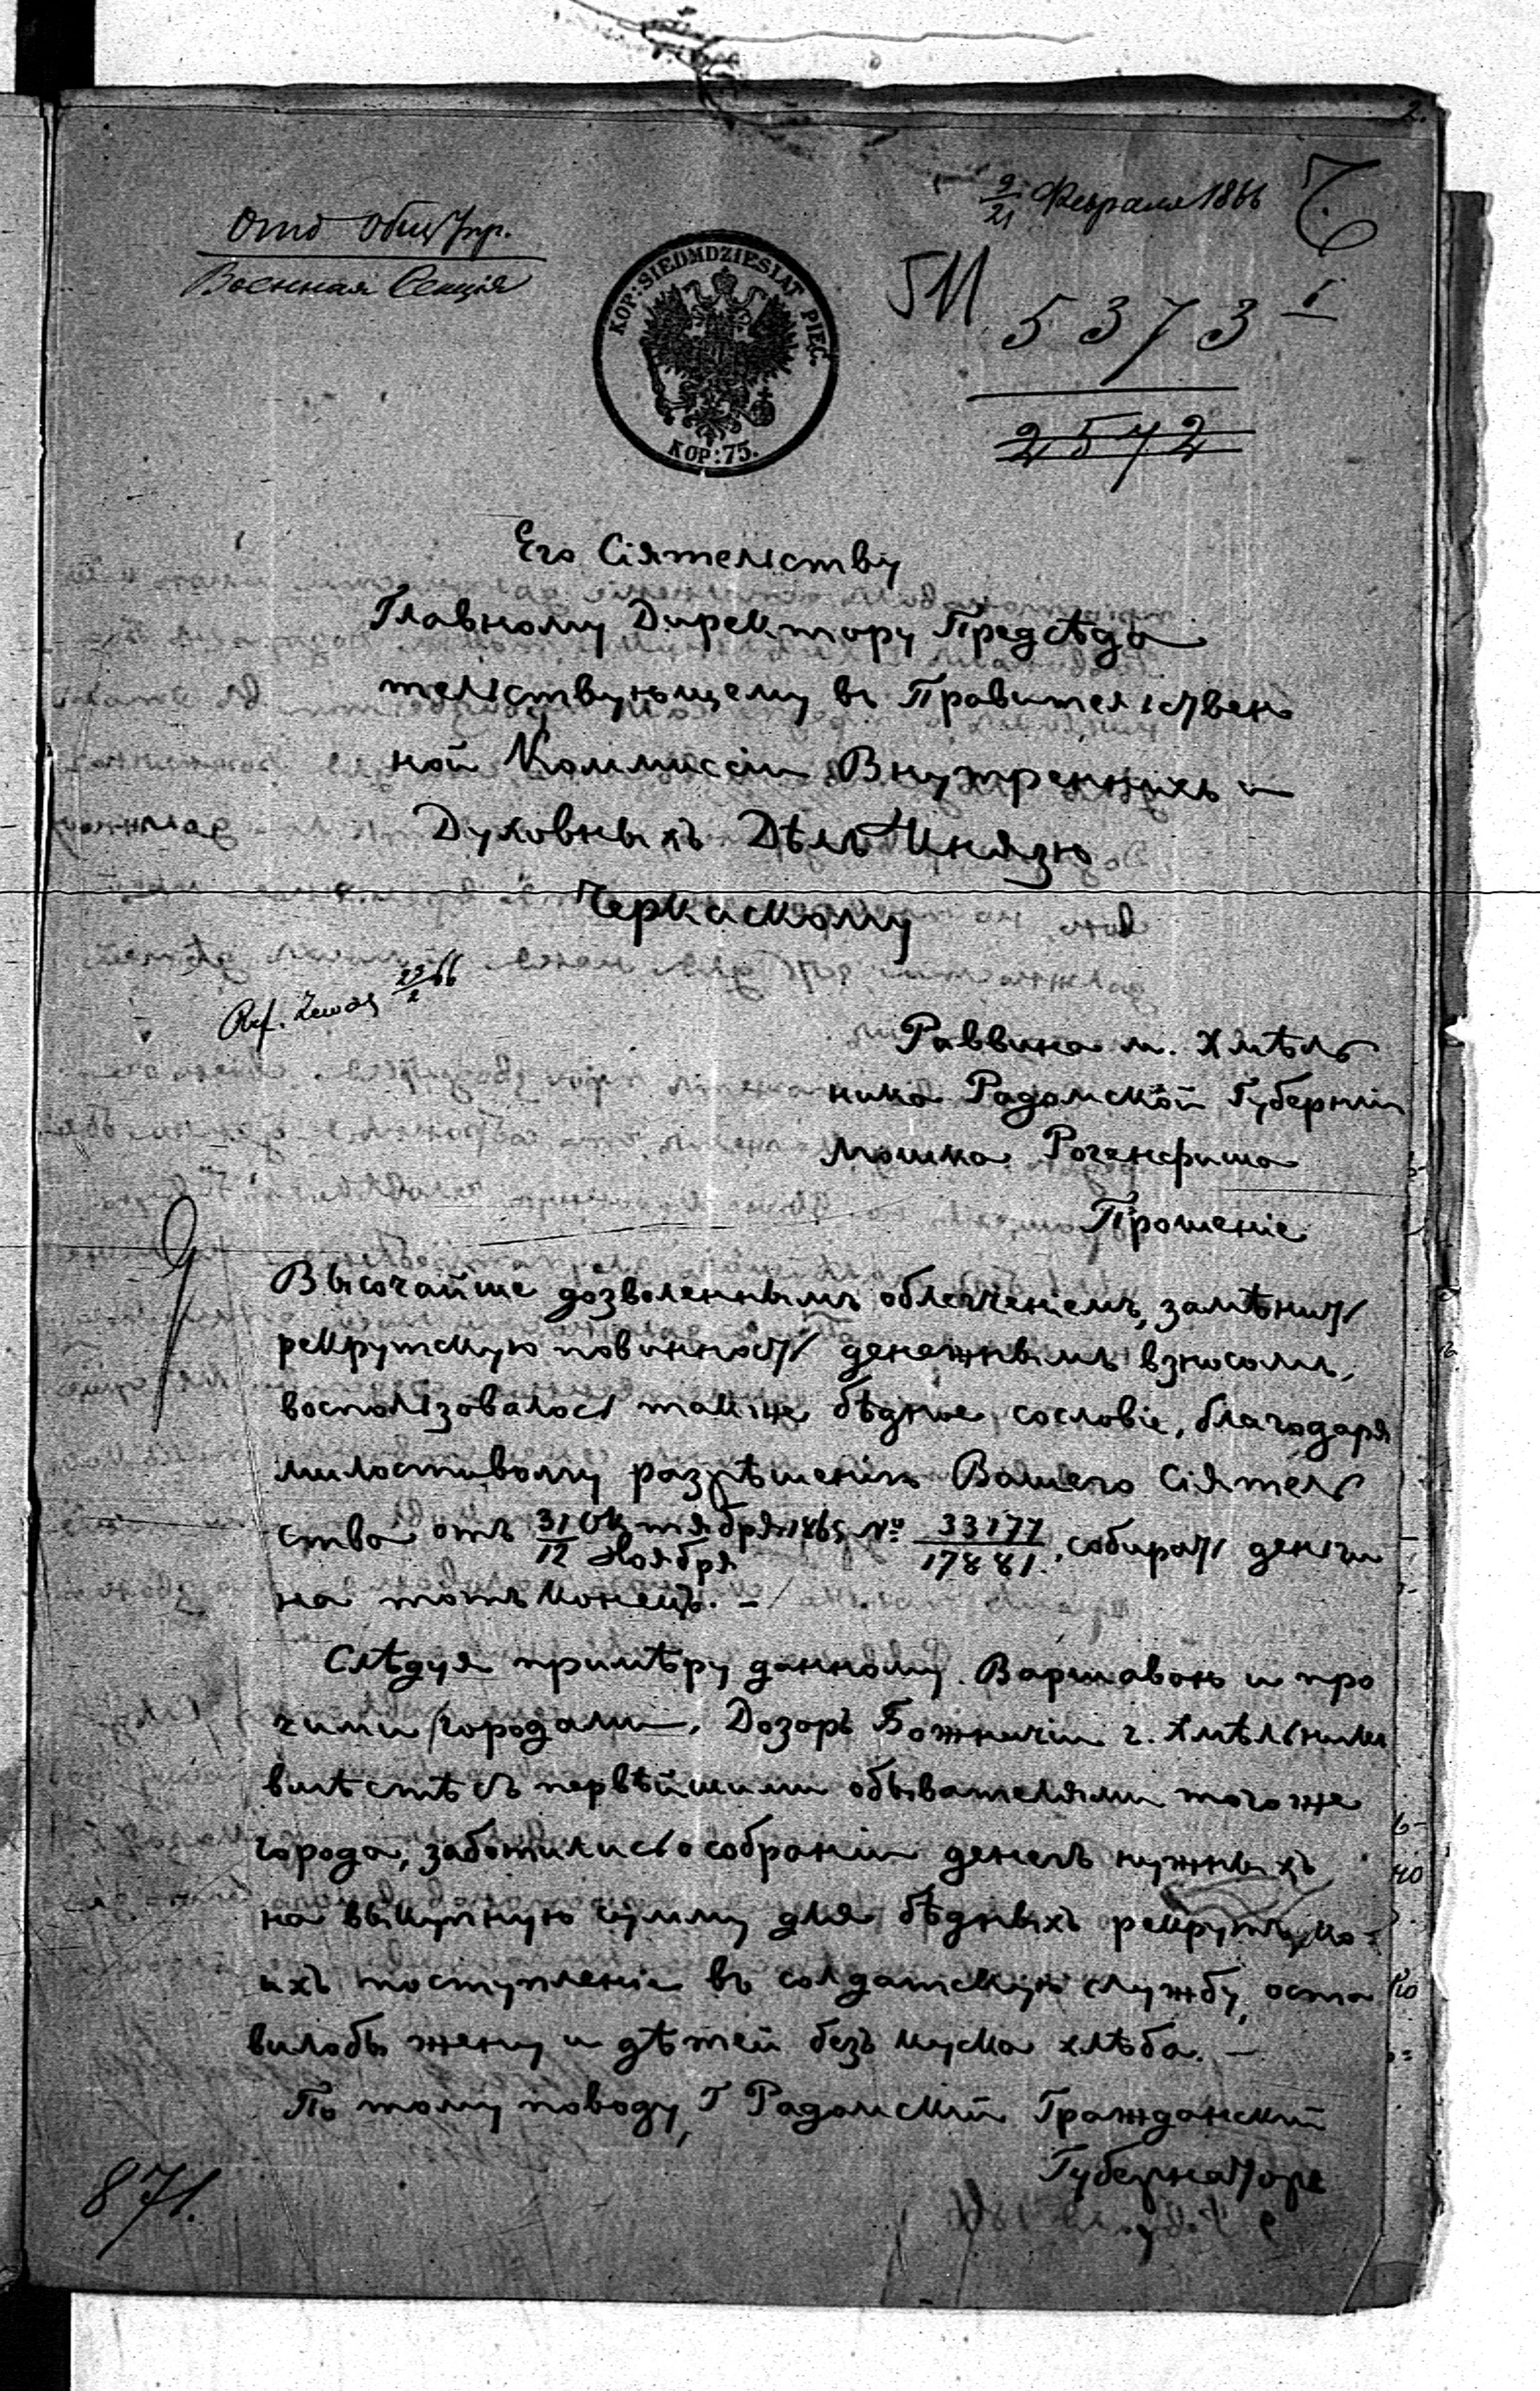 2.
9/21 Февраля 1866
Отд Общ Упр.
Военная Секція
KOP: SIEDMDZIESIĄT PIĘĆ.
KOP: 75.
5373
2542
Его Сіятельству
Главному Директору Предсѣда
тельствующему въ Правительствен
ной Коммисіи Внутреннихъ и
Духовныхъ Дѣлъ Князю
Черкаскому
Ref. 22/2 66
Раввина м. Хмѣль
ника Радомской Губерніи
Мошка Рогенфиша
Прошеніе
Высочайше дозволеннымъ облегченіемъ, замѣнить
рекрутскую повинность денежнымъ взносомъ,
воспользовалось также бѣдное сословіе, благодаря
милостивому разрѣшенію Вашего Сіятель
ства отъ 31 Октября/12 Ноября 1865 № 33177/17881. собирать деньги
на тотъ конецъ. –
Слѣдуя примѣру данному Варшавою и про
чими городами, Дозоръ Божничій г. Хмѣльника
вмѣстѣ съ первѣйшими обывателями тогоже
города, заботились о собраніи денегъ нужныхъ
на выкупную сумму для бѣдныхъ рекрутъ, ко=
ихъ поступленіе въ солдатскую службу, оста
вилобы жену и дѣтей безъ куска хлѣба. –
По тому поводу, Г Радомскій Гражданскій
Губернаторъ
871.